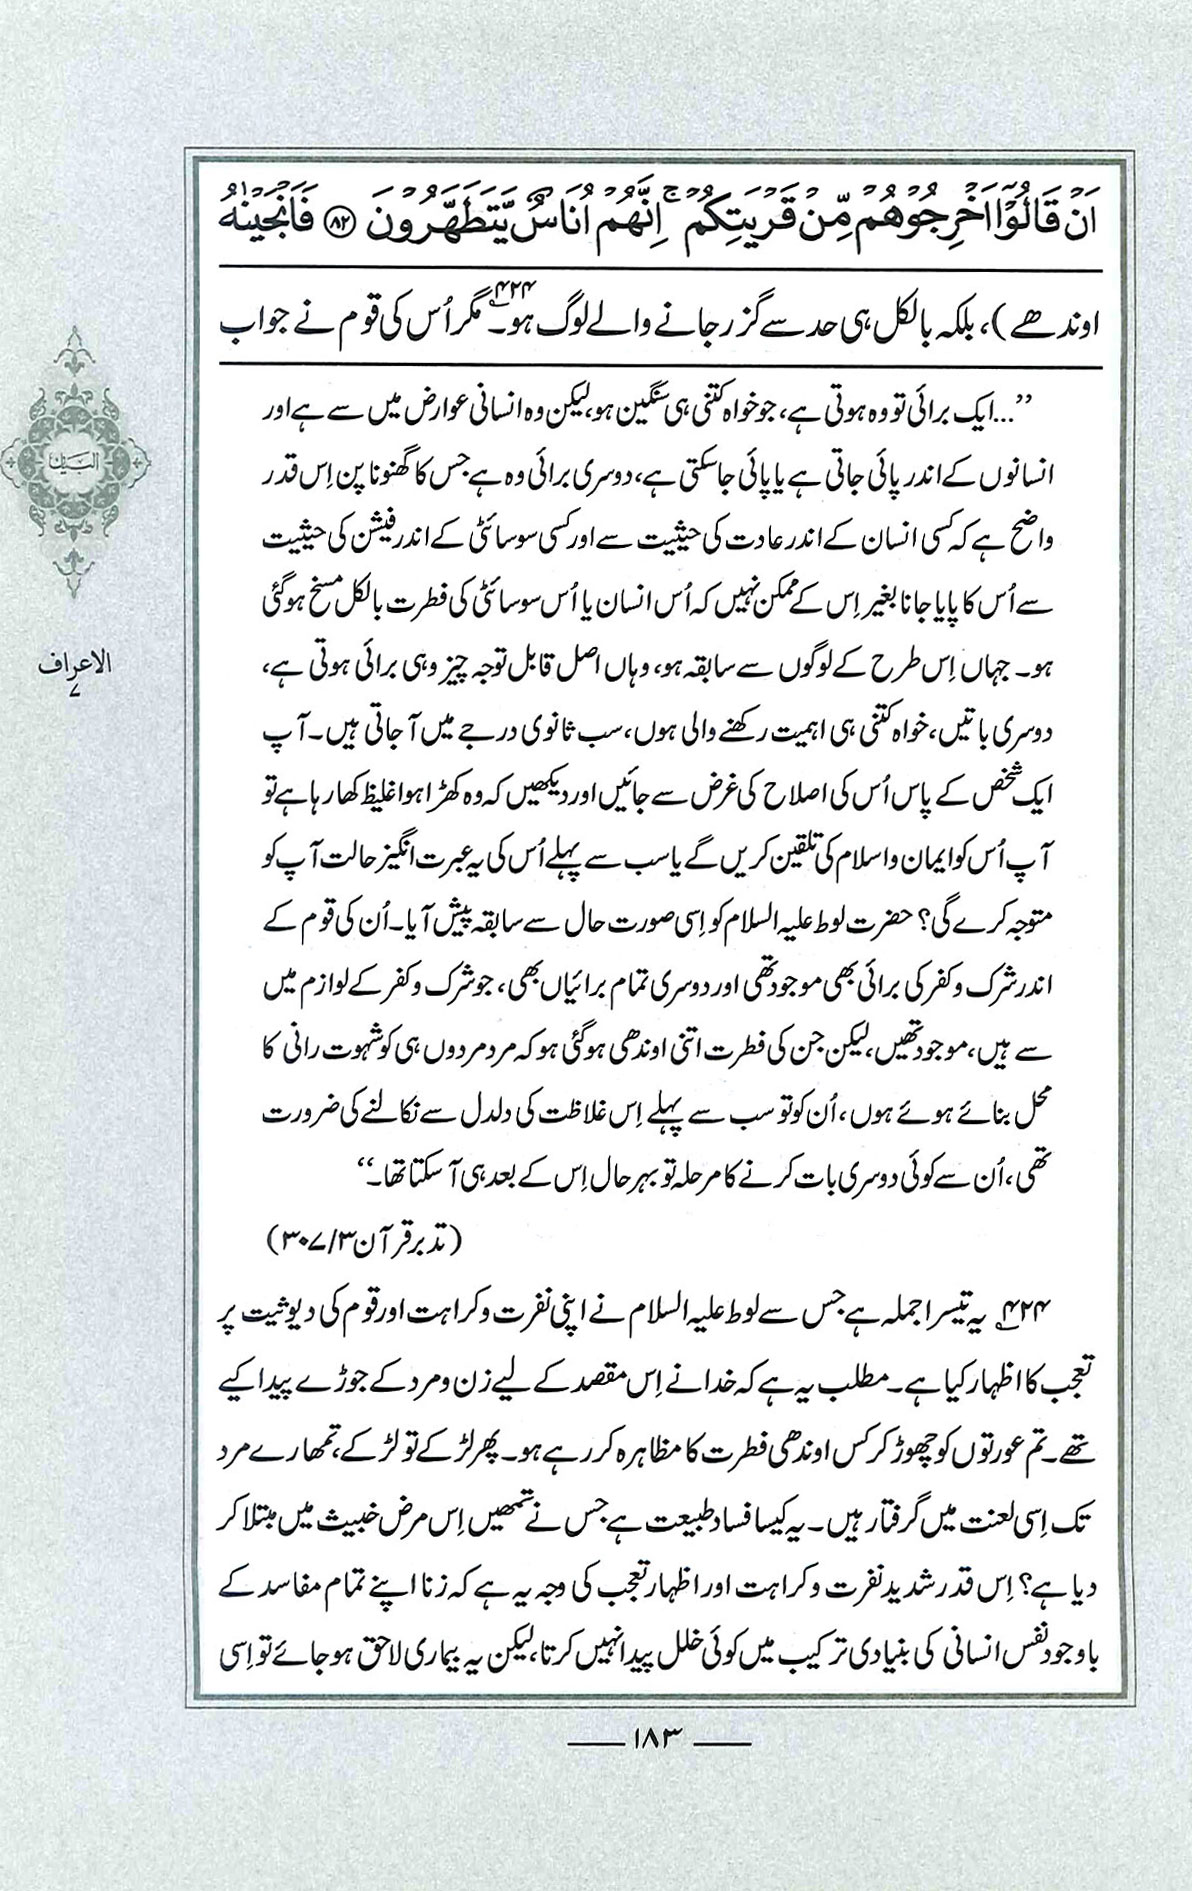 اَنْ قَالُوْٓا اَخْرِجُوْهُمْ مِّنْ قَرْيَتِكُمْ ۚ اِنَّهُمْ اُنَاسٌ يَّتَطَهَّرُوْنَ ﴿۸۲﴾ فَاَنْجَيْنٰهُ
اوندھے)، بلکہ بالکل ہی حد سے گزر جانے والے لوگ ہو۔۴۲۴ مگر اُس کی قوم نے جواب
’’...ایک برائی تو وہ ہوتی ہے، جو خواہ کتنی ہی سنگین ہو، لیکن وہ انسانی عوارض میں سے ہے اور
انسانوں کے اندر پائی جاتی ہے یا پائی جاسکتی ہے، دوسری برائی وہ ہے جس کا گھنونا پن اِس قدر
واضح ہے کہ کسی انسان کے اندر عادت کی حیثیت سے اور کسی سوسائٹی کے اندر فیشن کی حیثیت
سے اُس کا پایا جانا بغیر اِس کے ممکن نہیں کہ اُس انسان یا اُس سوسائٹی کی فطرت بالکل مسخ ہوگئی
ہو۔ جہاں اِس طرح کے لوگوں سے سابقہ ہو، وہاں اصل قابل توجہ چیز وہی برائی ہوتی ہے،
دوسری باتیں، خواہ کتنی ہی اہمیت رکھنے والی ہوں، سب ثانوی درجے میں آجاتی ہیں۔ آپ
ایک شخص کے پاس اُس کی اصلاح کی غرض سے جائیں اور دیکھیں کہ وہ کھڑا ہوا غلیظ کھا رہا ہے تو
آپ اُس کو ایمان و اسلام کی تلقین کریں گے یا سب سے پہلے اُس کی یہ عبرت انگیز حالت آپ کو
متوجہ کرے گی؟ حضرت لوط علیہ السلام کو اِسی صورت حال سے سابقہ پیش آیا۔ اُن کی قوم کے
اندر شرک و کفر کی برائی بھی موجود تھی اور دوسری تمام برائیاں بھی، جو شرک و کفر کے لوازم میں
سے ہیں، موجود تھیں، لیکن جن کی فطرت اتنی اوندھی ہوگئی ہو کہ مرد مردوں ہی کو شہوت رانی کا
محل بنائے ہوئے ہوں، اُن کو تو سب سے پہلے اِس غلاظت کی دلدل سے نکالنے کی ضرورت
تھی، اُن سے کوئی دوسری بات کرنے کا مرحلہ تو بہرحال اِس کے بعد ہی آسکتا تھا۔‘‘
(تدبر قرآن ۳/ ۳۰۷)
۴۲۴ یہ تیسرا جملہ ہے جس سے لوط علیہ السلام نے اپنی نفرت و کراہت اور قوم کی دیوثیت پر
تعجب کا اظہار کیا ہے۔ مطلب یہ ہے کہ خدا نے اِس مقصد کے لیے زن و مرد کے جوڑے پیدا کیے
تھے۔ تم عورتوں کو چھوڑ کر کس اوندھی فطرت کا مظاہرہ کر رہے ہو۔ پھر لڑکے تو لڑکے، تمھارے مرد
تک اِسی لعنت میں گرفتار ہیں۔ یہ کیسا فساد طبیعت ہے جس نے تمھیں اِس مرض خبیث میں مبتلا کر
دیا ہے؟ اِس قدر شدید نفرت و کراہت اور اظہار تعجب کی وجہ یہ ہے کہ زنا اپنے تمام مفاسد کے
باوجود نفس انسانی کی بنیادی ترکیب میں کوئی خلل پیدا نہیں کرتا، لیکن یہ بیماری لاحق ہوجائے تو اِسی
البیان
الاعراف
۷
۱۸۳